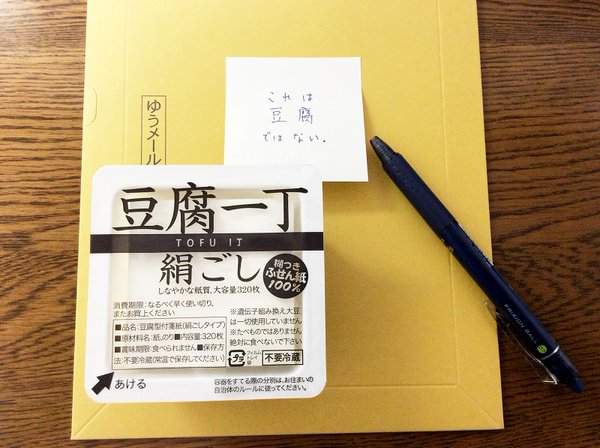 ゆうメール
これは
豆腐
ではない.
豆腐一丁
TOFU IT
絹ごし
しなやかな紙質、大容量320枚
糊つき
ふせん紙
100%
消費期限:なるべく早く使い切り、
またお買上ください
■品名:豆腐型付箋紙(絹ごしタイプ)
■原材料名:紙、のり■内容量320枚
■賞味期限:食べられません■保存方
法:不要冷蔵(常温で保存してください)
※遺伝子組み換え大豆
は一切使用していません
※たべものではありません
絶対に食べないで下さい
プラ
フィルム
トレイ
不要冷蔵
あける
容器をすてる際の分別は、お住まいの
自治体のルールに従ってください。
FRIXION BALL